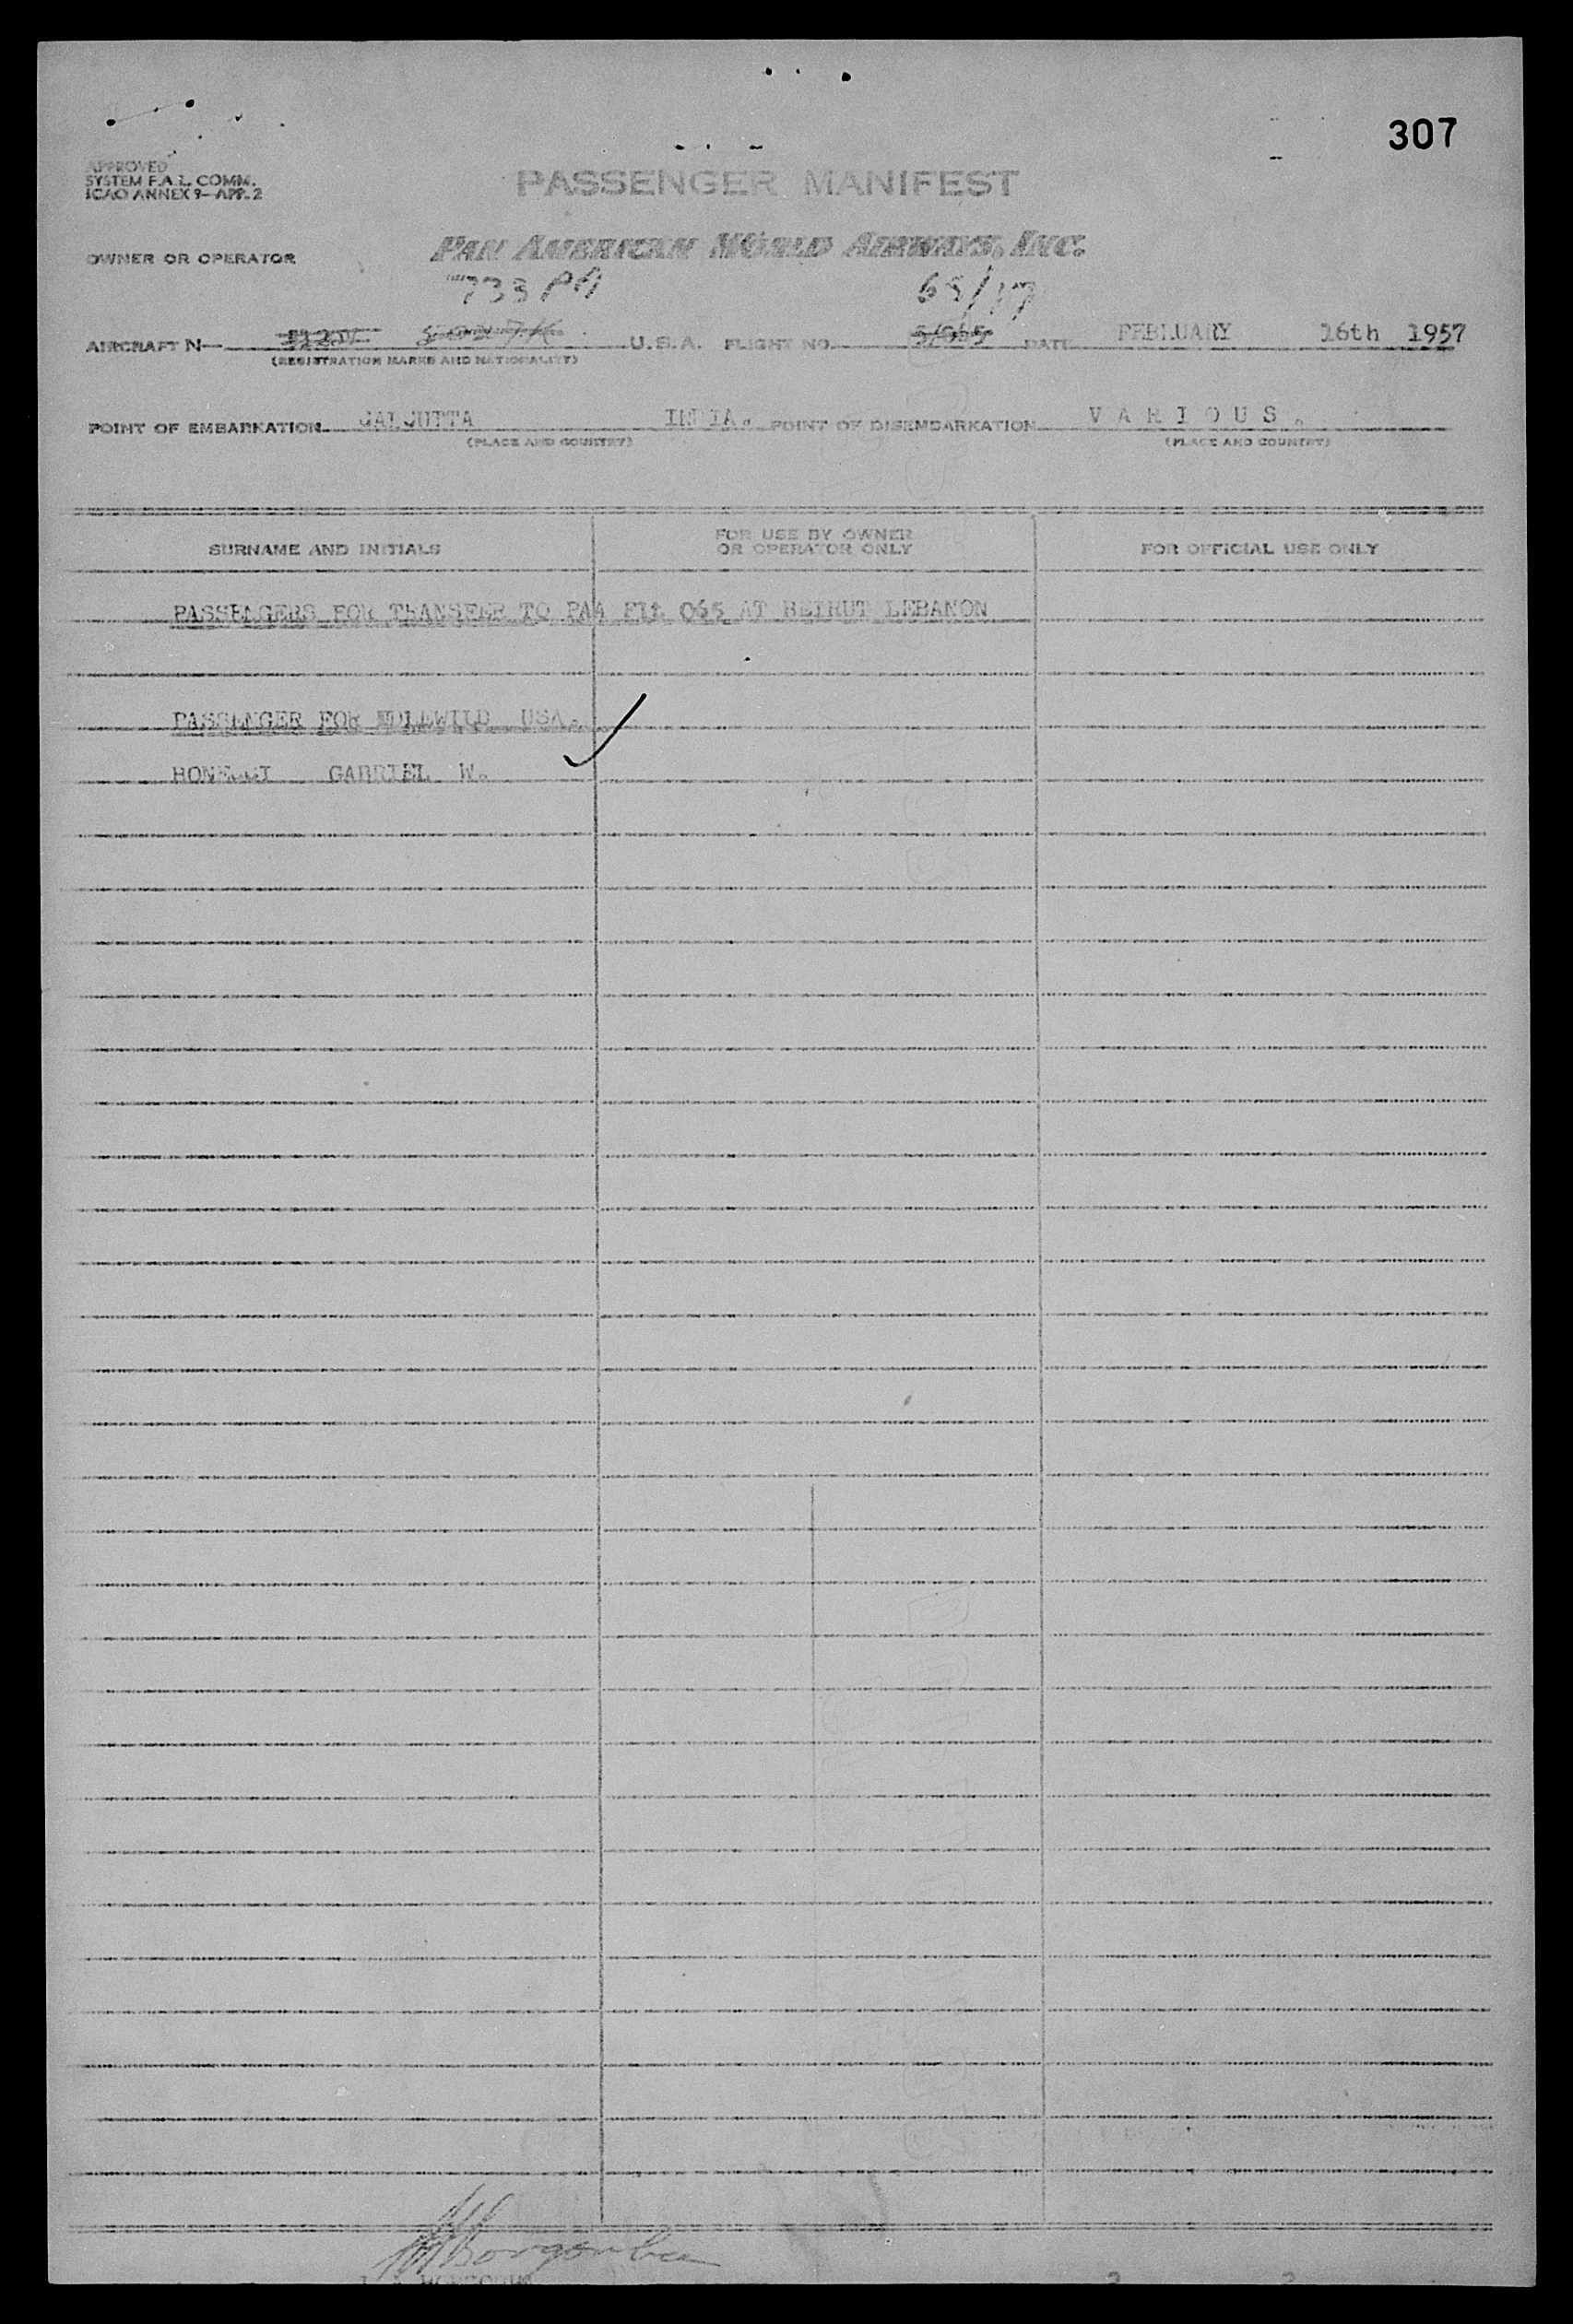 307
APPROVED
SYSTEM F.A.L. COMM.
ICAO ANNEX 9-APP. 2
PASSENGER MANIFEST
OWNER OR OPERATOR PAN AMERICAN WORLD AIRWAYS, INC.
733 PA 65/17
AIRCRAFT N- U.S.A. FLIGHT NO. 5/065 DATE FEBLUARY 16th 1957
(REGISTRATION MARKS AND NATIONALITY)
POINT OF EMBARKATION CALCUTTA INDIA. POINT OF DISEMBARKATION V A R I O U S .
(PLACE AND COUNTRY) (PLACE AND COUNTRY)
SURNAME AND INITIALS FOR USE BY OWNER OR OPERATOR ONLY FOR OFFICIAL USE ONLY
PASSENGERS FOR TRANSFER TO PAA Flt 065 AT BEIRUT LEBANON
PASSENGER FOR IDLEWILD USA.
GABRIEL W.